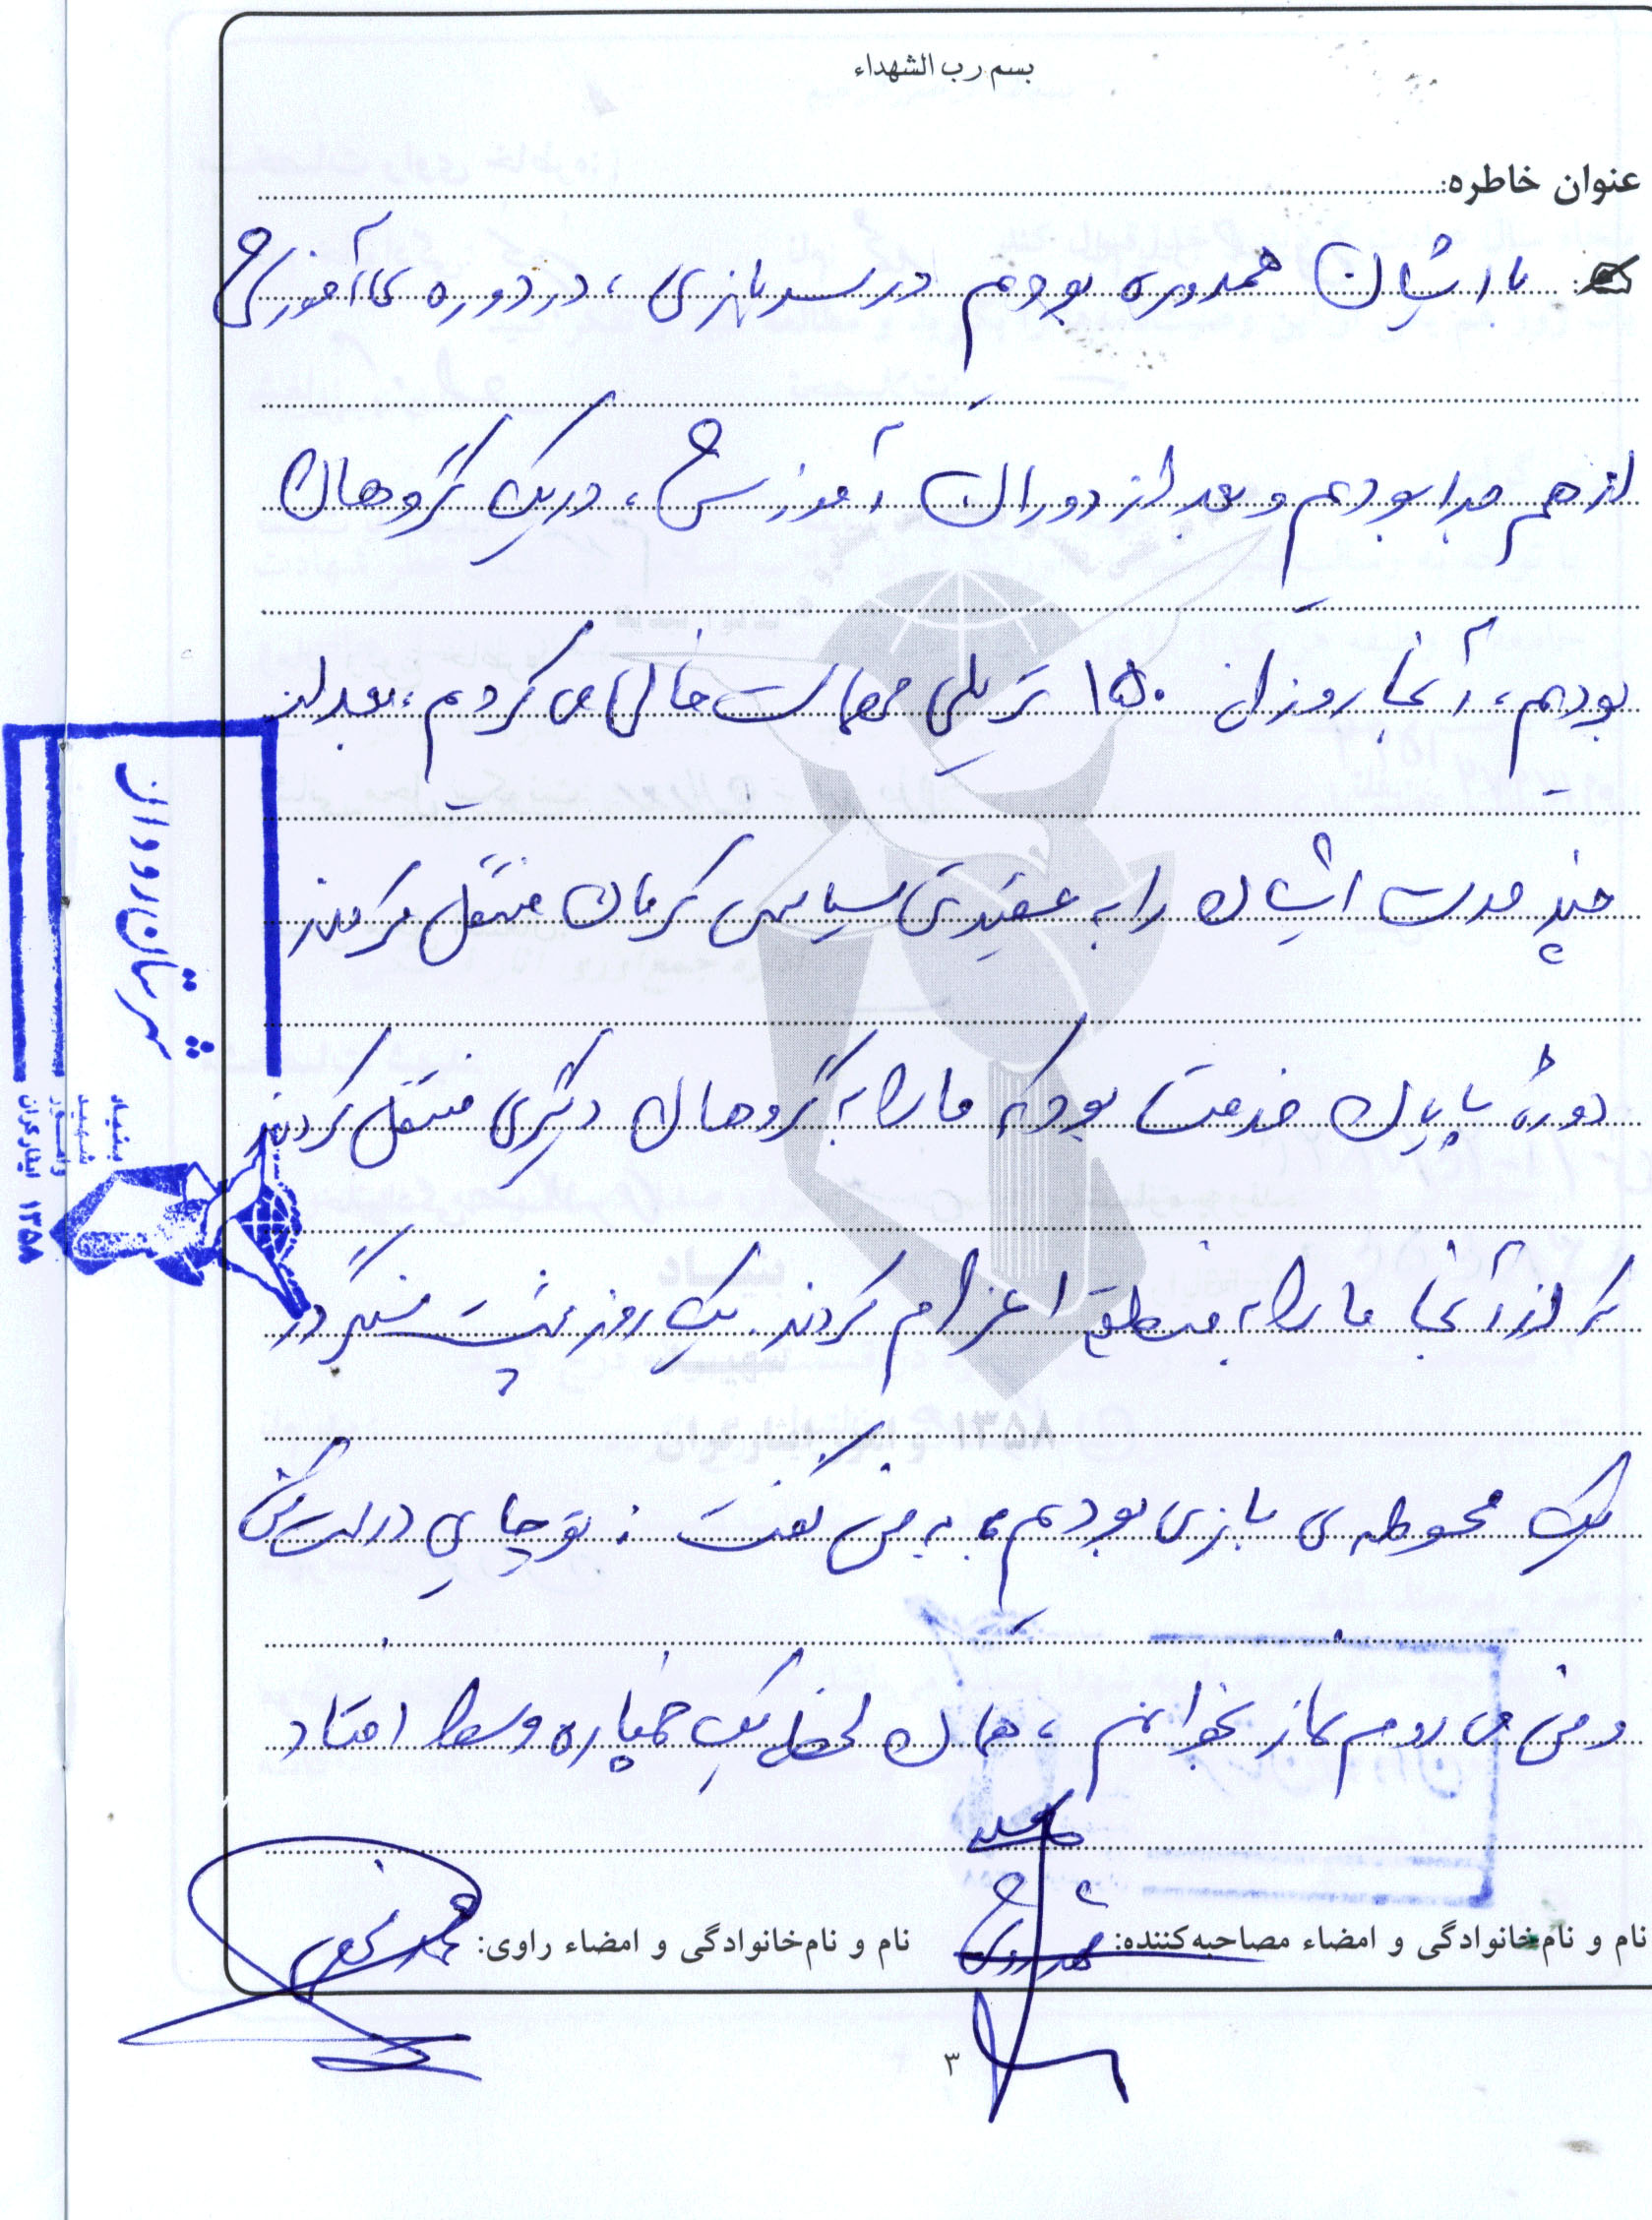 بسم رب الشهداء
عنوان خاطره:
با ایشان همدوره بودیم در سربازی، در دوره ی آموزش
از هم جدا بودیم و بعد از دوران آموزش، در یک گروهان
بودیم، آنجا روزانه ۱۵۰ تریلی مهمات خالی می کردیم، بعد از
چند مدت ایشان را به عقیدتی سیاسی کرمان منتقل کردند
دوره پایان خدمت بود که ما را به گروهان دیگری منتقل کردند
که از آنجا ما را به منطقه اعزام کردند. یک روز پشت سنگر در
یک محوطه ی بازی بودیم، به من گفت: تو چایی درست کن
و من می روم نماز بخوانم، همان لحظه یک خمپاره وسط افتاد
نام و نام‌خانوادگی و امضاء مصاحبه‌کننده:
نام و نام‌خانوادگی و امضاء راوی: محمد
۳
شهرستان رودان
بنیاد
شهید
و امور
ایثارگران
۱۳۵۸